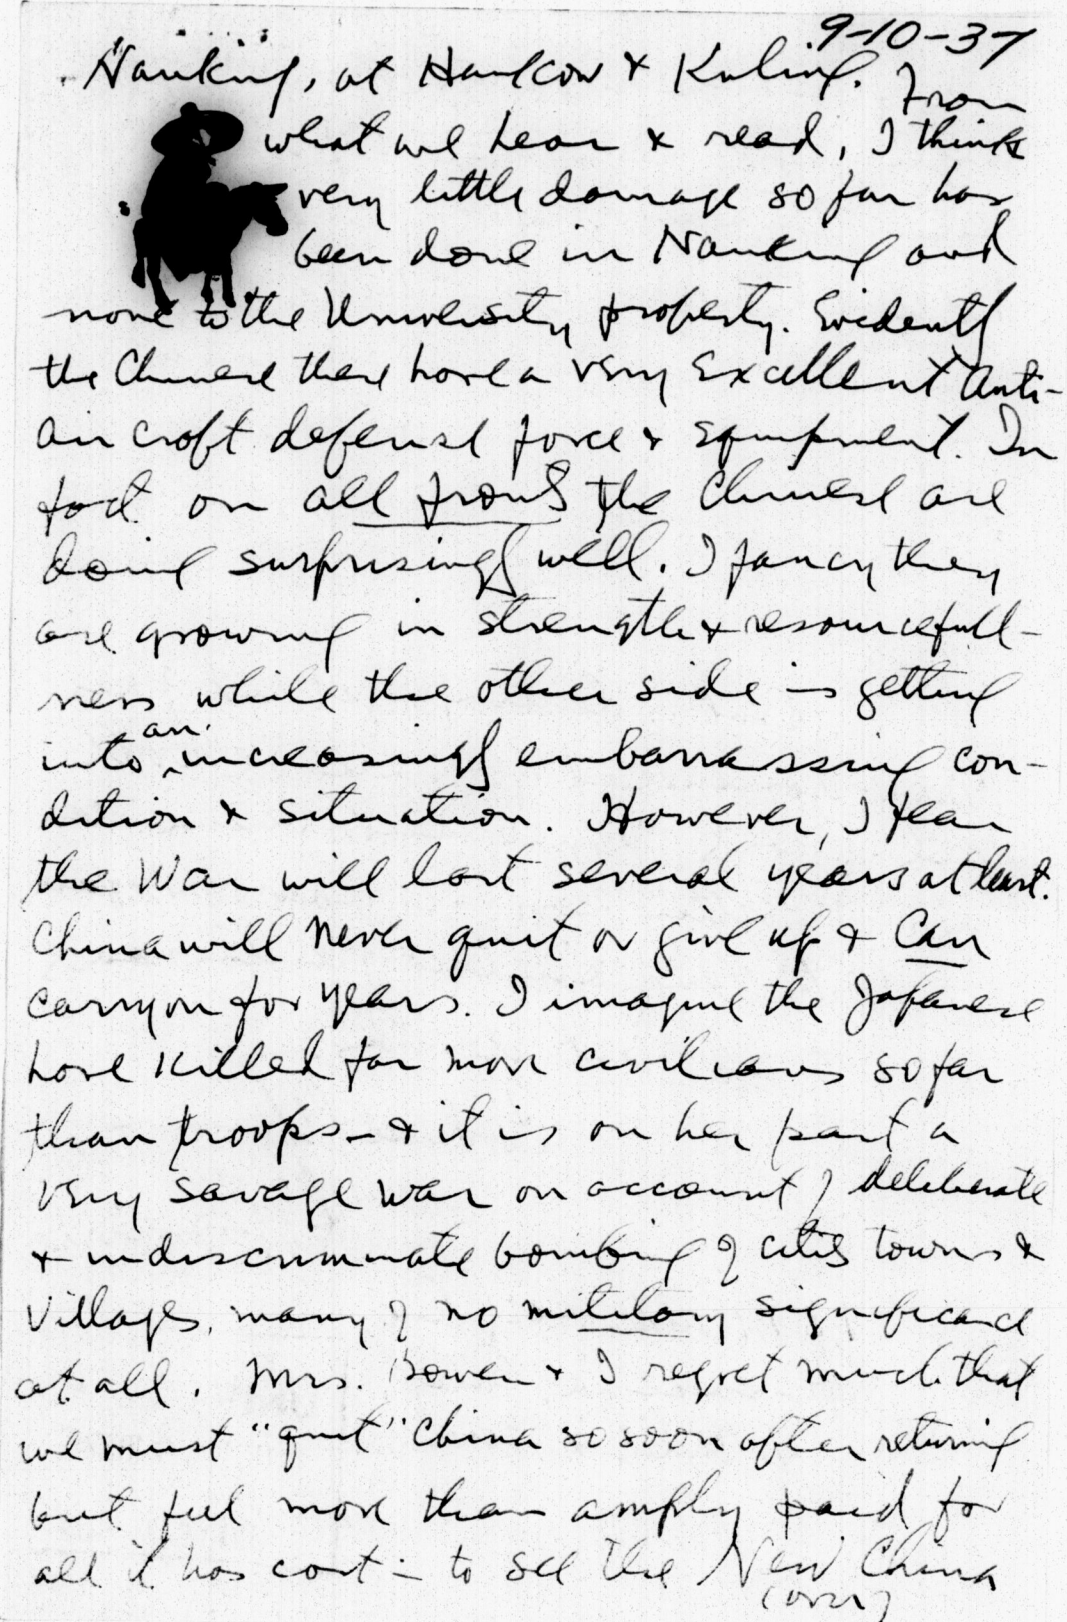 9-10-37
Nanking, at Hankow & Kuling. From
what we hear & read, I think
very little damage so far has
been done in Nanking and
none to the University property. Evidently
the Chinese there have a very excellent anti-
air craft defense force & equipment. In
fact on all fronts the Chinese are
doing surprisingly well. I fancy they
are growing in strength & resourcefull-
ness while the other side is getting
into an increasingly embarrassing con-
dition & situation. However, I fear
the War will last several years at least.
China will never quit or give up & can
carry on for years. I imagine the Japanese
have killed far more civilians so far
than troops - & it is on her part a
very savage war on account of deliberate
& indiscriminate bombing of cities towns &
villages, many of no military significance
at all. Mrs. Bowen & I regret much that
we must "quit" China so soon after returning
but feel more than amply paid for
all it has cost - to see the New China
(over)